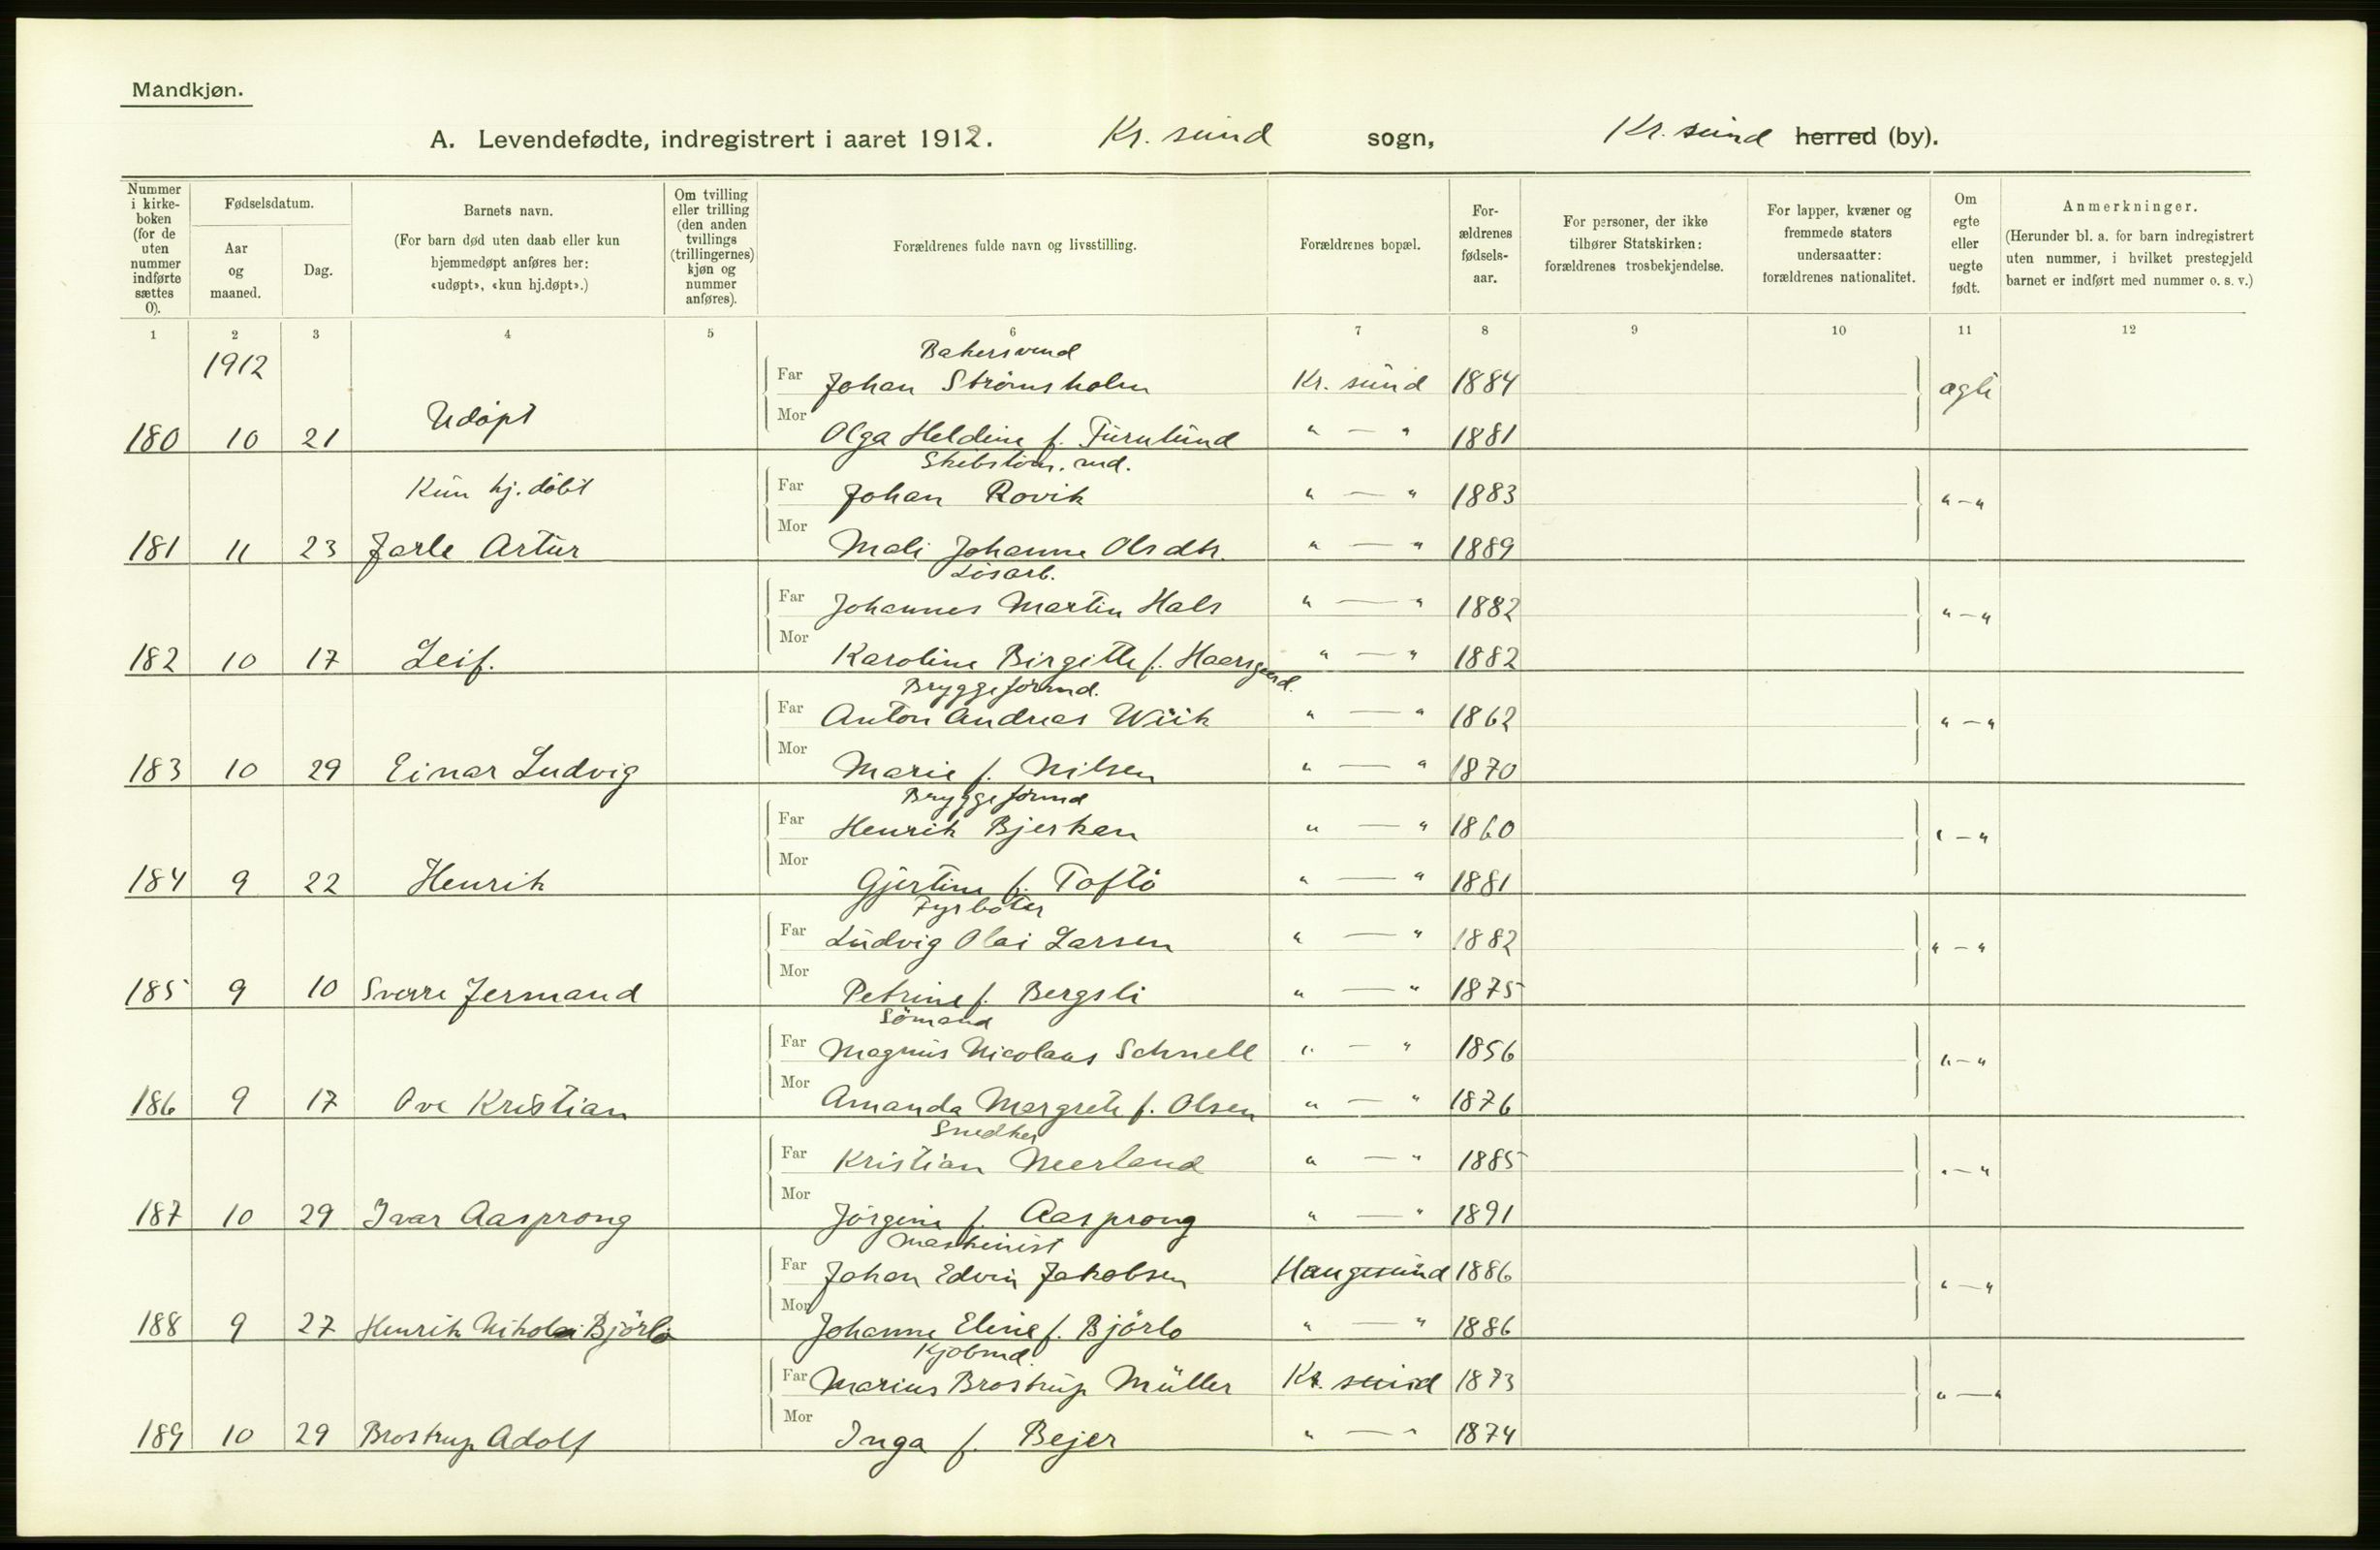 Mandkjøn.
A. Levendefødte, indregistrert i aaret 1912. Kr. sund sogn, Kr. sund herred (by).
Nummer i kirkeboken (for de uten nummer indførte sættes 0).
Fødselsdatum.
Aar og maaned.
Dag.
Barnets navn.
(For barn død uten daab eller kun hjemmedøpt anføres her: «udøpt», «kun hj.døpt».)
Om tvilling eller trilling (den anden tvillings (trillingernes) kjøn og nummer anføres).
Forældrenes fulde navn og livsstilling.
Forældrenes bopæl.
For-ældrenes fødsels-aar.
For personer, der ikke tilhører Statskirken: forældrenes trosbekjendelse.
For lapper, kvæner og fremmede staters undersaatter: forældrenes nationalitet.
Om egte eller uegte født.
Anmerkninger.
(Herunder bl. a. for barn indregistrert uten nummer, i hvilket prestegjeld barnet er indført med nummer o. s. v.)
1 2 3 4 5 6 7 8 9 10 11 12
1912
Bakersvend
Far Johan Strömsholm Kr. sund 1884 ægte
180 10 21 Udöpt Mor Olga Heldine f. Furulund " — " 1881
Skibstöm. md.
Kun hj. döbt Far Johan Rovik " — " 1883 " — "
181 11 23 Jarle Artur Mor Mali Johanne Olsdtr. " — " 1889
Lösarb.
Far Johannes Martin Hals " — " 1882 " — "
182 10 17 Leif. Mor Karoline Birgitte f. Haersgaard. " — " 1882
Bryggeformd.
Far Anton Andreas Wiik " — " 1862 " — "
183 10 29 Einar Ludvig Mor Marie f. Nilsen " — " 1870
Bryggeformd
Far Henrik Bjerkan " — " 1860 " — "
184 9 22 Henrik Mor Gjertine f. Toftö " — " 1881
Fyrböter
Far Ludvig Olai Larsen " — " 1882 " — "
185 9 10 Sverre Jermand Mor Petrine f. Bergsli " — " 1875
Sömand
Far Magnus Nicolaus Schnell " — " 1856 " — "
186 9 17 Ove Kristian Mor Amanda Margrete f. Olsen " — " 1876
Snedker
Far Kristian Neerland " — " 1885 " — "
187 10 29 Ivar Aasprong Mor Jörgine f. Aasprong " — " 1891
Maskinist
Far Johan Edvin Jakobsen Haugesund 1886 " — "
188 9 27 Henrik Nikolai Björlo Mor Johanne Eline f. Björlo " — " 1886
Kjöbmd.
Far Marius Brostrup Müller Kr. sund 1873 " — "
189 10 29 Brostrup Adolf Mor Inga f. Bejer " — " 1874